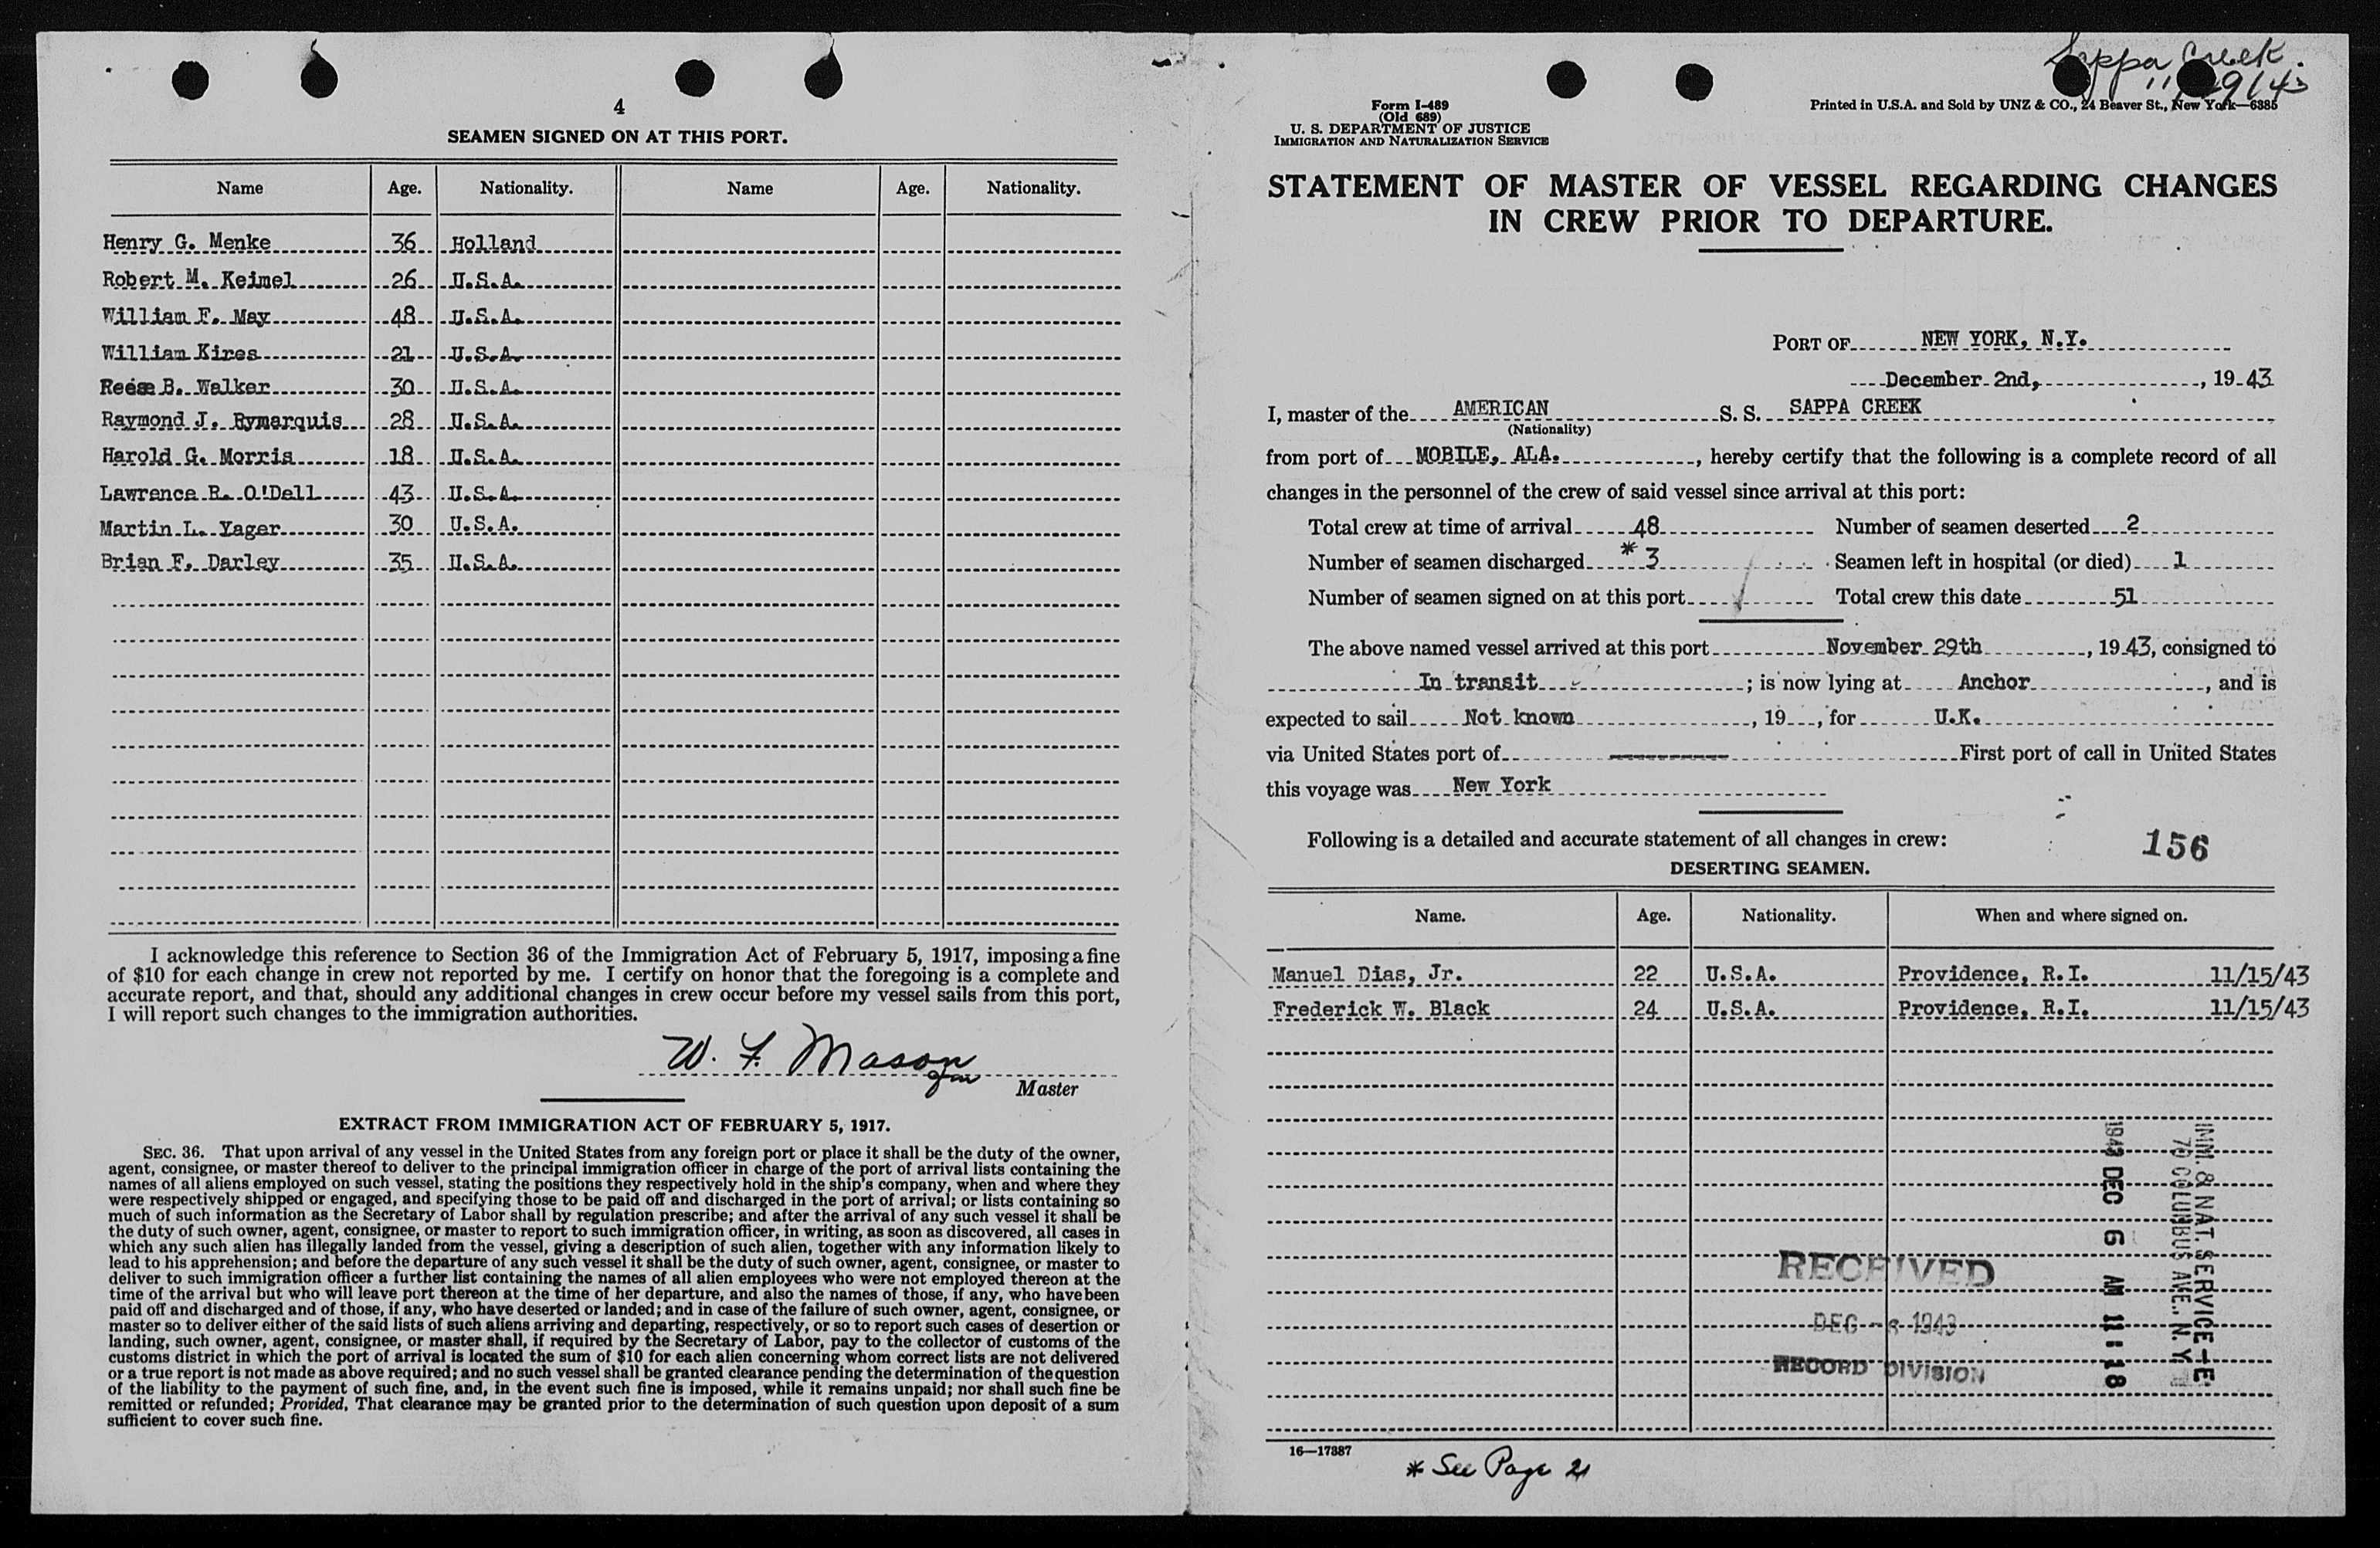 4
SEAMEN SIGNED ON AT THIS PORT.
Name Age. Nationality. Name Age. Nationality.
Henry G. Menke 36 Holland
Robert M. Keimel 26 U.S.A.
William F. May 48 U.S.A.
William Kires 21 U.S.A.
Reese B. Walker 30 U.S.A.
Raymond J. Rymarquis 28 U.S.A.
Harold G. Morris 18 U.S.A.
Lawrence R. O'Dell 43 U.S.A.
Martin L. Yager 30 U.S.A.
Brian F. Darley 35 U.S.A.
I acknowledge this reference to Section 36 of the Immigration Act of February 5, 1917, imposing a fine
of $10 for each change in crew not reported by me. I certify on honor that the foregoing is a complete and
accurate report, and that, should any additional changes in crew occur before my vessel sails from this port,
I will report such changes to the immigration authorities.
W. F. Mason
Master
EXTRACT FROM IMMIGRATION ACT OF FEBRUARY 5, 1917.
SEC. 36. That upon arrival of any vessel in the United States from any foreign port or place it shall be the duty of the owner,
agent, consignee, or master thereof to deliver to the principal immigration officer in charge of the port of arrival lists containing the
names of all aliens employed on such vessel, stating the positions they respectively hold in the ship's company, when and where they
were respectively shipped or engaged, and specifying those to be paid off and discharged in the port of arrival; or lists containing so
much of such information as the Secretary of Labor shall by regulation prescribe; and after the arrival of any such vessel it shall be
the duty of such owner, agent, consignee, or master to report to such immigration officer, in writing, as soon as discovered, all cases in
which any such alien has illegally landed from the vessel, giving a description of such alien, together with any information likely to
lead to his apprehension; and before the departure of any such vessel it shall be the duty of such owner, agent, consignee, or master to
deliver to such immigration officer a further list containing the names of all alien employees who were not employed thereon at the
time of the arrival but who will leave port thereon at the time of her departure, and also the names of those, if any, who have been
paid off and discharged and of those, if any, who have deserted or landed; and in case of the failure of such owner, agent, consignee, or
master so to deliver either of the said lists of such aliens arriving and departing, respectively, or so to report such cases of desertion or
landing, such owner, agent, consignee, or master shall, if required by the Secretary of Labor, pay to the collector of customs of the
customs district in which the port of arrival is located the sum of $10 for each alien concerning whom correct lists are not delivered
or a true report is not made as above required; and no such vessel shall be granted clearance pending the determination of the question
of the liability to the payment of such fine, and, in the event such fine is imposed, while it remains unpaid; nor shall such fine be
remitted or refunded; Provided, That clearance may be granted prior to the determination of such question upon deposit of a sum
sufficient to cover such fine.
Sappa Creek.
11/29/43
Form I-489
(Old 689)
U. S. DEPARTMENT OF JUSTICE
IMMIGRATION AND NATURALIZATION SERVICE
Printed in U.S.A. and Sold by UNZ & CO., 24 Beaver St., New York—6385
STATEMENT OF MASTER OF VESSEL REGARDING CHANGES
IN CREW PRIOR TO DEPARTURE.
PORT OF NEW YORK, N.Y.
December 2nd, , 19 43
I, master of the AMERICAN S. S. SAPPA CREEK
(Nationality)
from port of MOBILE, ALA. , hereby certify that the following is a complete record of all
changes in the personnel of the crew of said vessel since arrival at this port:
Total crew at time of arrival 48 Number of seamen deserted 2
Number of seamen discharged * 3 Seamen left in hospital (or died) 1
Number of seamen signed on at this port Total crew this date 51
The above named vessel arrived at this port November 29th , 19 43, consigned to
In transit ; is now lying at Anchor , and is
expected to sail Not known , 19 , for U.K.
via United States port of ---------- First port of call in United States
this voyage was New York
Following is a detailed and accurate statement of all changes in crew:
156
DESERTING SEAMEN.
Name. Age. Nationality. When and where signed on.
Manuel Dias, Jr. 22 U.S.A. Providence, R.I. 11/15/43
Frederick W. Black 24 U.S.A. Providence, R.I. 11/15/43
IMM. & NAT. SERVICE-E
70 COLUMBUS AVE., N.Y.
1943 DEC 6 AM 11 18
RECEIVED
DEC 1943
RECORD DIVISION
16—17387
* See Page 2